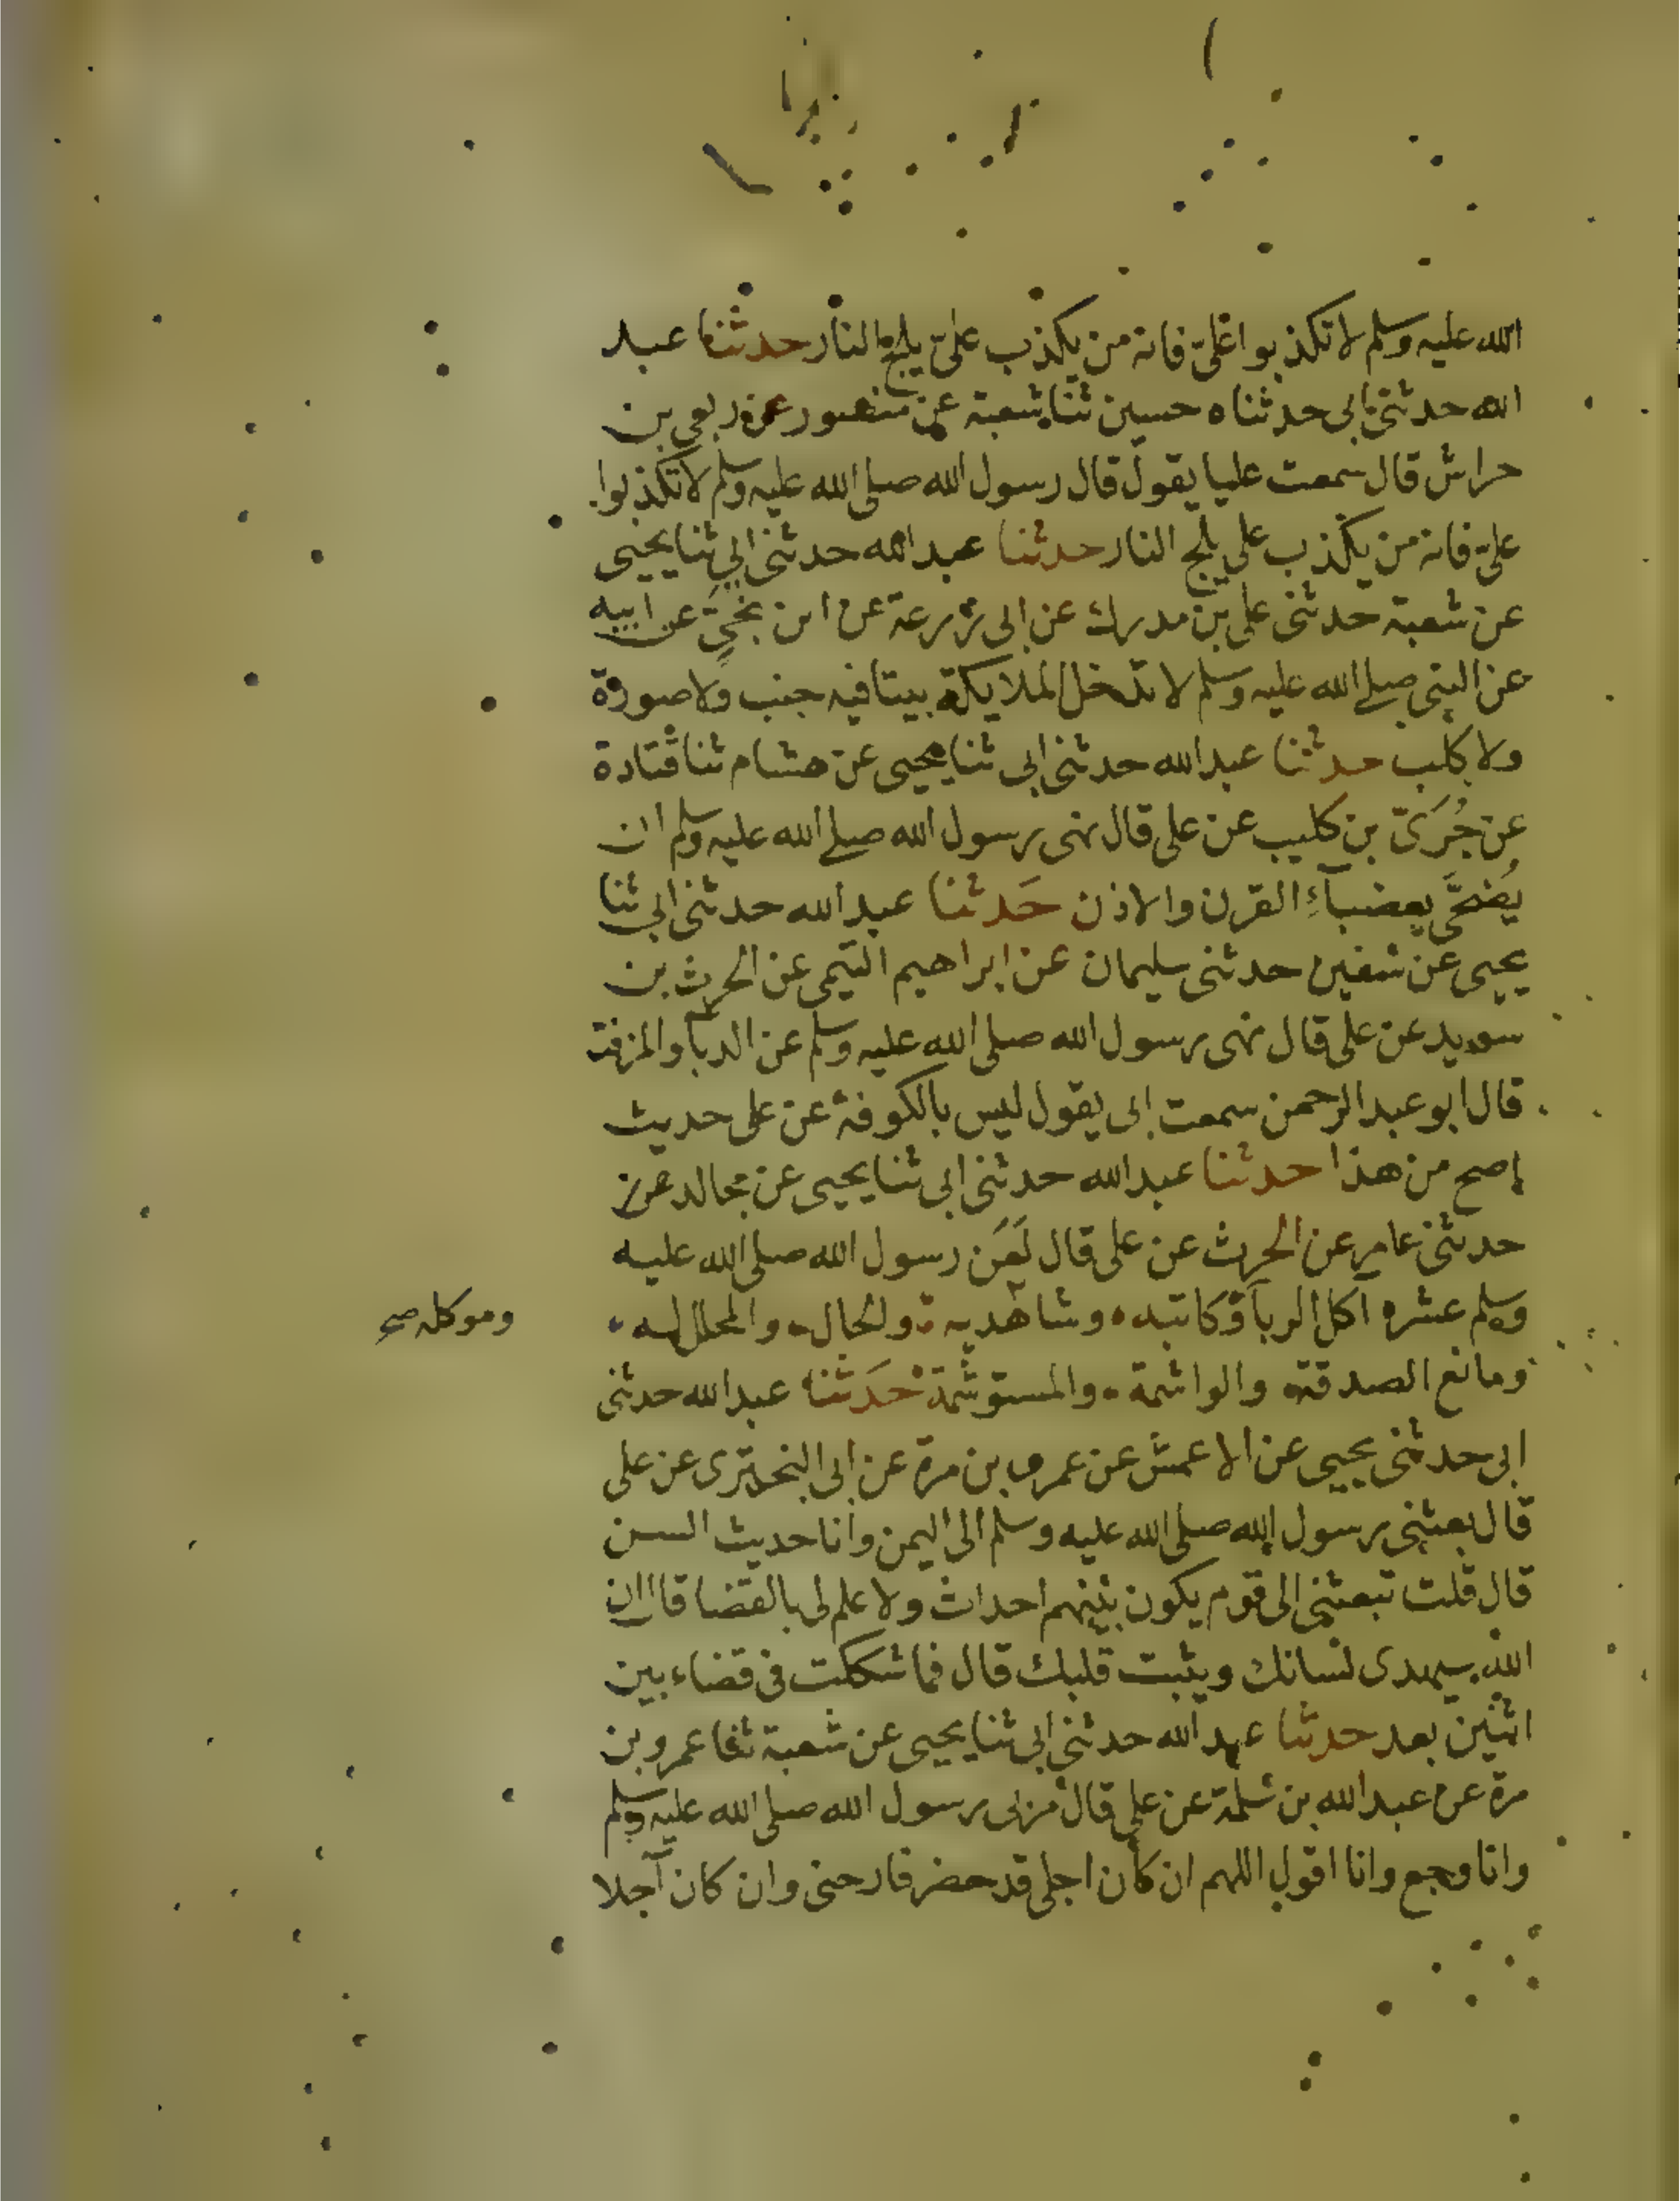 الله عليه وسلم لا تكذبوا علىّ فانه من يكذب علىّ يلج النار حدثنا عبد
الله حدثنى ابى حدثناه حسين ثنا شعبة عن منصور عن ربعى بن
حراش قال سمعت عليا يقول قال رسول الله صلى الله عليه وسلم لا تكذبوا
علىّ فانه من يكذب على يلج النار حدثنا عبد الله حدثنى ابي ثنا يحيى
عن شعبة حدثنى على بن مدرك عن ابى زرعة عن ابن نجىٍّ عن ابيه
عن النبى صلى الله عليه وسلم لا تدخل الملايكة بيتا فيه جنب ولا صورة
ولا كلب حدثنا عبد الله حدثنى ابى ثنا يحيى عن هشام ثنا قتادة
عن جُرَىّ بن كليب عن على قال نهى رسول الله صلى الله عليه وسلم ان
يُضحَّى بعضبآءِ القرن والاذن حَدثنا عبد الله حدثنى ابى ثنا
يحيى عن سفين حدثنى سليمان عن ابراهيم التيمى عن الحرث بن
سويد عن على قال نهى رسول الله صلى الله عليه وسلم عن الدبآ والمزفت
قال ابو عبد الرحمن سمعت ابى يقول ليس بالكوفة عن على حديث
اصح من هذا حدثنا عبد الله حدثنى ابى ثنا يحيى عن مجالد عن
حدثنى عامر عن الحرث عن على قال لَعَن رسول الله صلى الله عليه
وسلم عشره آكل الربآ وكاتبه وشاهديه والحال والمحلل له
وموكله صح
ومانع الصدقة والواشمة والمستوشمة حَدثنا عبد الله حدثنى
ابى حدثنى يحيى عن الاعمش عن عمرو بن مرة عن ابى البخترى عن على
قال بعثنى رسول الله صلى الله عليه وسلم الى اليمن وانا حديث السن
قال قلت تبعثنى الى قوم يكون بينهم احداث ولا علم لى بالقضا قال ان
الله سيهدى لسانك ويثبت قلبك قال فما شككت فى قضاء بين
اثنين بعد حدثنا عبد الله حدثنى ابى ثنا يحيى عن شعبة ثنا عمرو بن
مرة عن عبد الله بن سلمة عن على قال مر بى رسول الله صلى الله عليه وسلم
وانا وجع وانا اقول اللهم ان كان اجلى قد حضر فارحنى وان كان آجلا